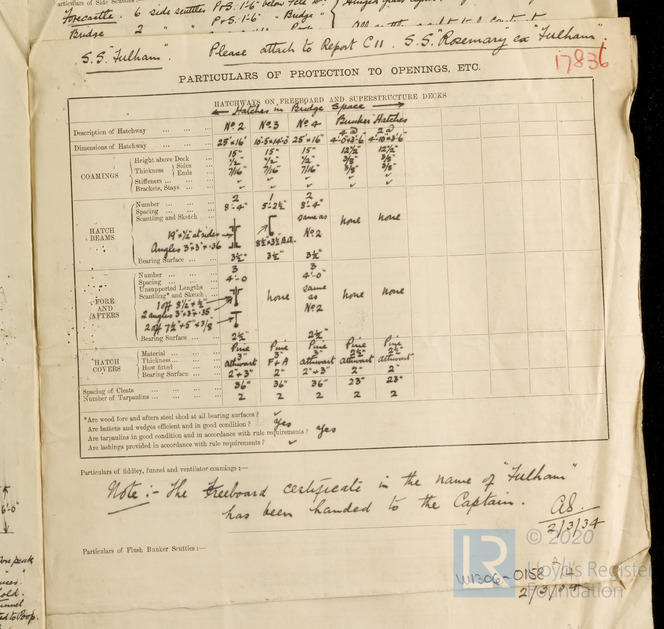 Forecastle. 6 side scuttles P+S. 1'-6" below
Bridge 2 " P+S. 1'-6" " Bridge "
S.S. "Fulham". Please attach to Report C11. S.S. "Rosemary ex "Fulham".
17836
PARTICULARS OF PROTECTION TO OPENINGS, ETC.
HATCHWAYS ON FREEBOARD AND SUPERSTRUCTURE DECKS
Hatches in Bridge Space
Description of Hatchway Nº 2 Nº 3 Nº 4 Bunker Hatches
Dimensions of Hatchway 25' × 16' 10'-5 × 14'-0 25' × 16' 4'-0 × 3'-6" 4'-10 × 3'-6"
COAMINGS
Height above Deck 15" 15" 15" 12½" 12½"
Thickness Sides ½" ½" ½" 3/8" 3/8"
Ends 7/16" 7/16" 7/16" 3/8" 3/8"
Stiffeners ✓ ✓ ✓ ✓ ✓
Brackets, Stays ✓ ✓ ✓ ✓ ✓
HATCH BEAMS
Number 2 1 2
Spacing 8'-4" 5'-2½" 8'-4"
Scantling and Sketch same as Nº 2 none none
19" × ½" at sides
Angles 3" × 3" × .36 8½ × 3½ B.A.
Bearing Surface 3½" 3½" 3½"
FORE AND AFTERS
Number 3 3
Spacing 4'-0 4'-0"
Unsupported Lengths
Scantling* and Sketch none same as Nº 2 none none
1 off 8½ × ½"
2 angles 3" × 3" × .35
2 off 7½" × 5" × 3/8
Bearing Surface 2½" 2½"
HATCH COVERS
Material Pine Pine Pine Pine Pine
Thickness 3" 3" 3" 2½" 2½"
How fitted athwart F + A athwart athwart athwart
Bearing Surface 2" + 3" 2" 2" + 3" 2" 2"
Spacing of Cleats 36" 36" 36" 23" 23"
Number of Tarpaulins 2 2 2 2 2
*Are wood fore and afters steel shod at all bearing surfaces? ✓
Are battens and wedges efficient and in good condition? Yes
Are tarpaulins in good condition and in accordance with rule requirements? Yes
Are lashings provided in accordance with rule requirements? ✓
Particulars of fiddley, funnel and ventilator coamings:—
Note:- The Freeboard certificate in the name of "Fulham"
has been handed to the Captain.
AS.
2/3/34
© 2020
Lloyd's Register
Foundation
LR
W1306-0158
Particulars of Flush Bunker Scuttles:—